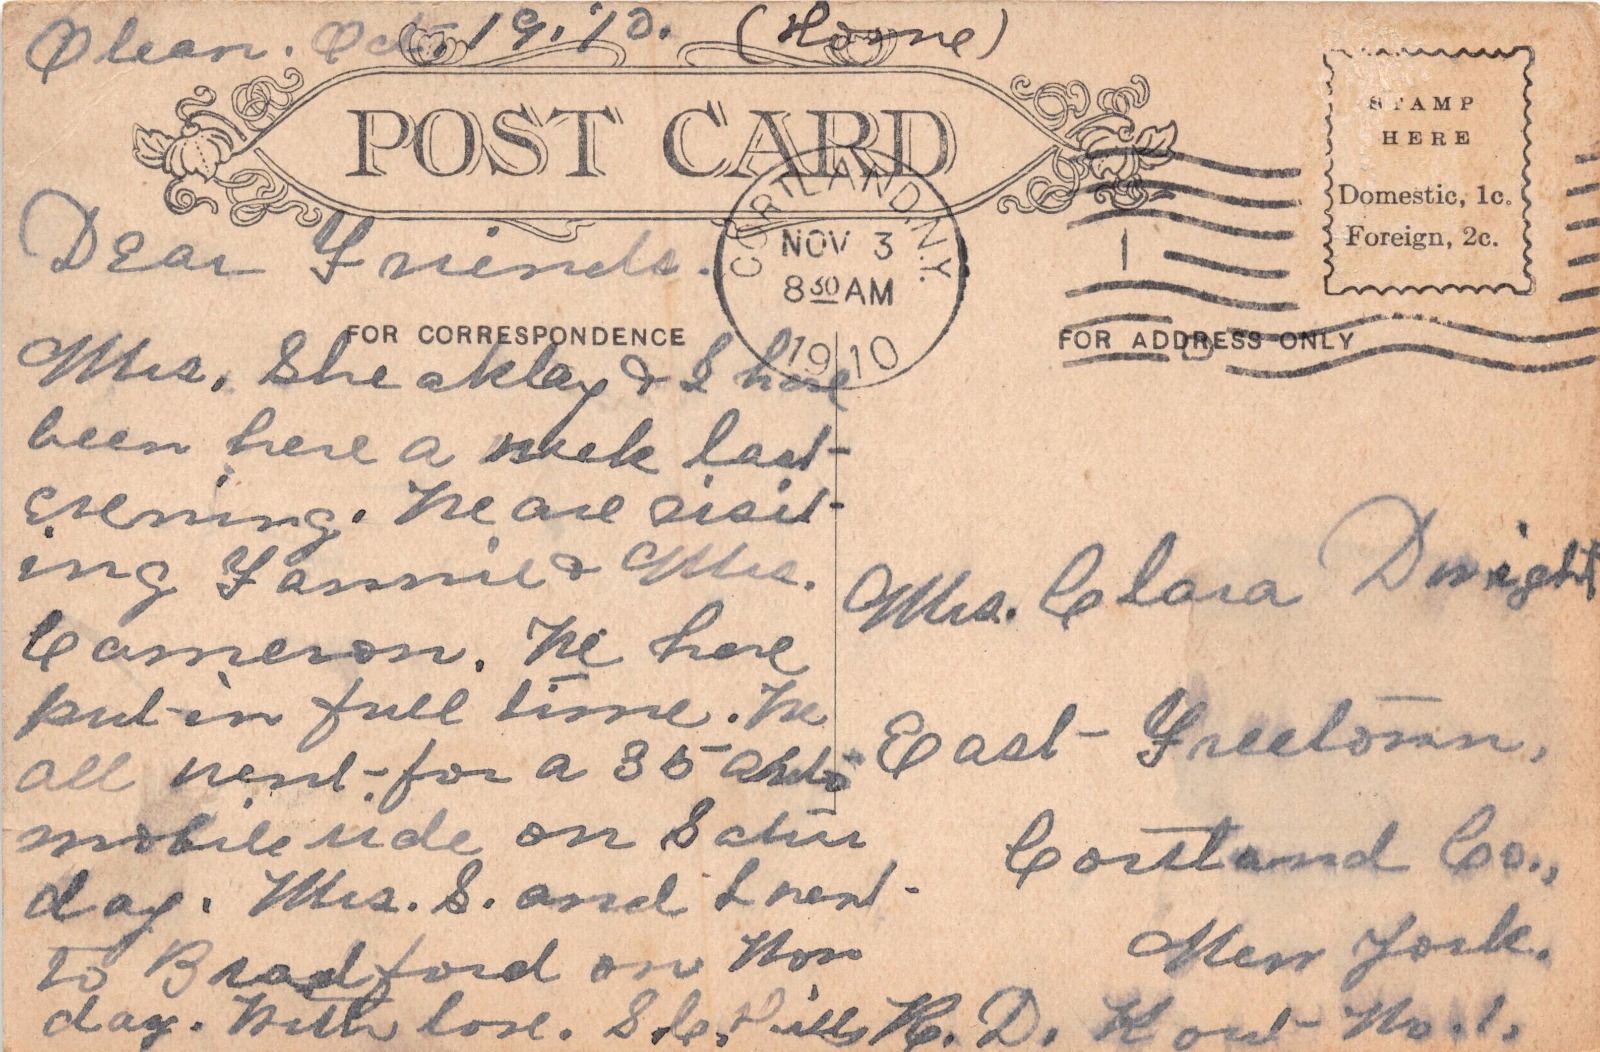 Olean. Oct. 19, '10. (Home)
POST CARD
STAMP
HERE
Domestic, 1c.
Foreign, 2c.
CORTLAND, N.Y.
NOV 3
8 30 AM
1910
1
FOR CORRESPONDENCE
FOR ADDRESS ONLY
Dear Friends.
Mrs. Sheaklay & I have
been here a week last
evening. We are visit-
ing Fannie & Mrs.
Cameron. We have
put in full time. We
all went for a 35 auto
mobile ride on Satur
day. Mrs. S. and I went
to Bradford on Mon
day. With love. S.
Mrs. Clara Dwight
East Freetown,
Cortland Co.,
New York.
R. D. No. 1.